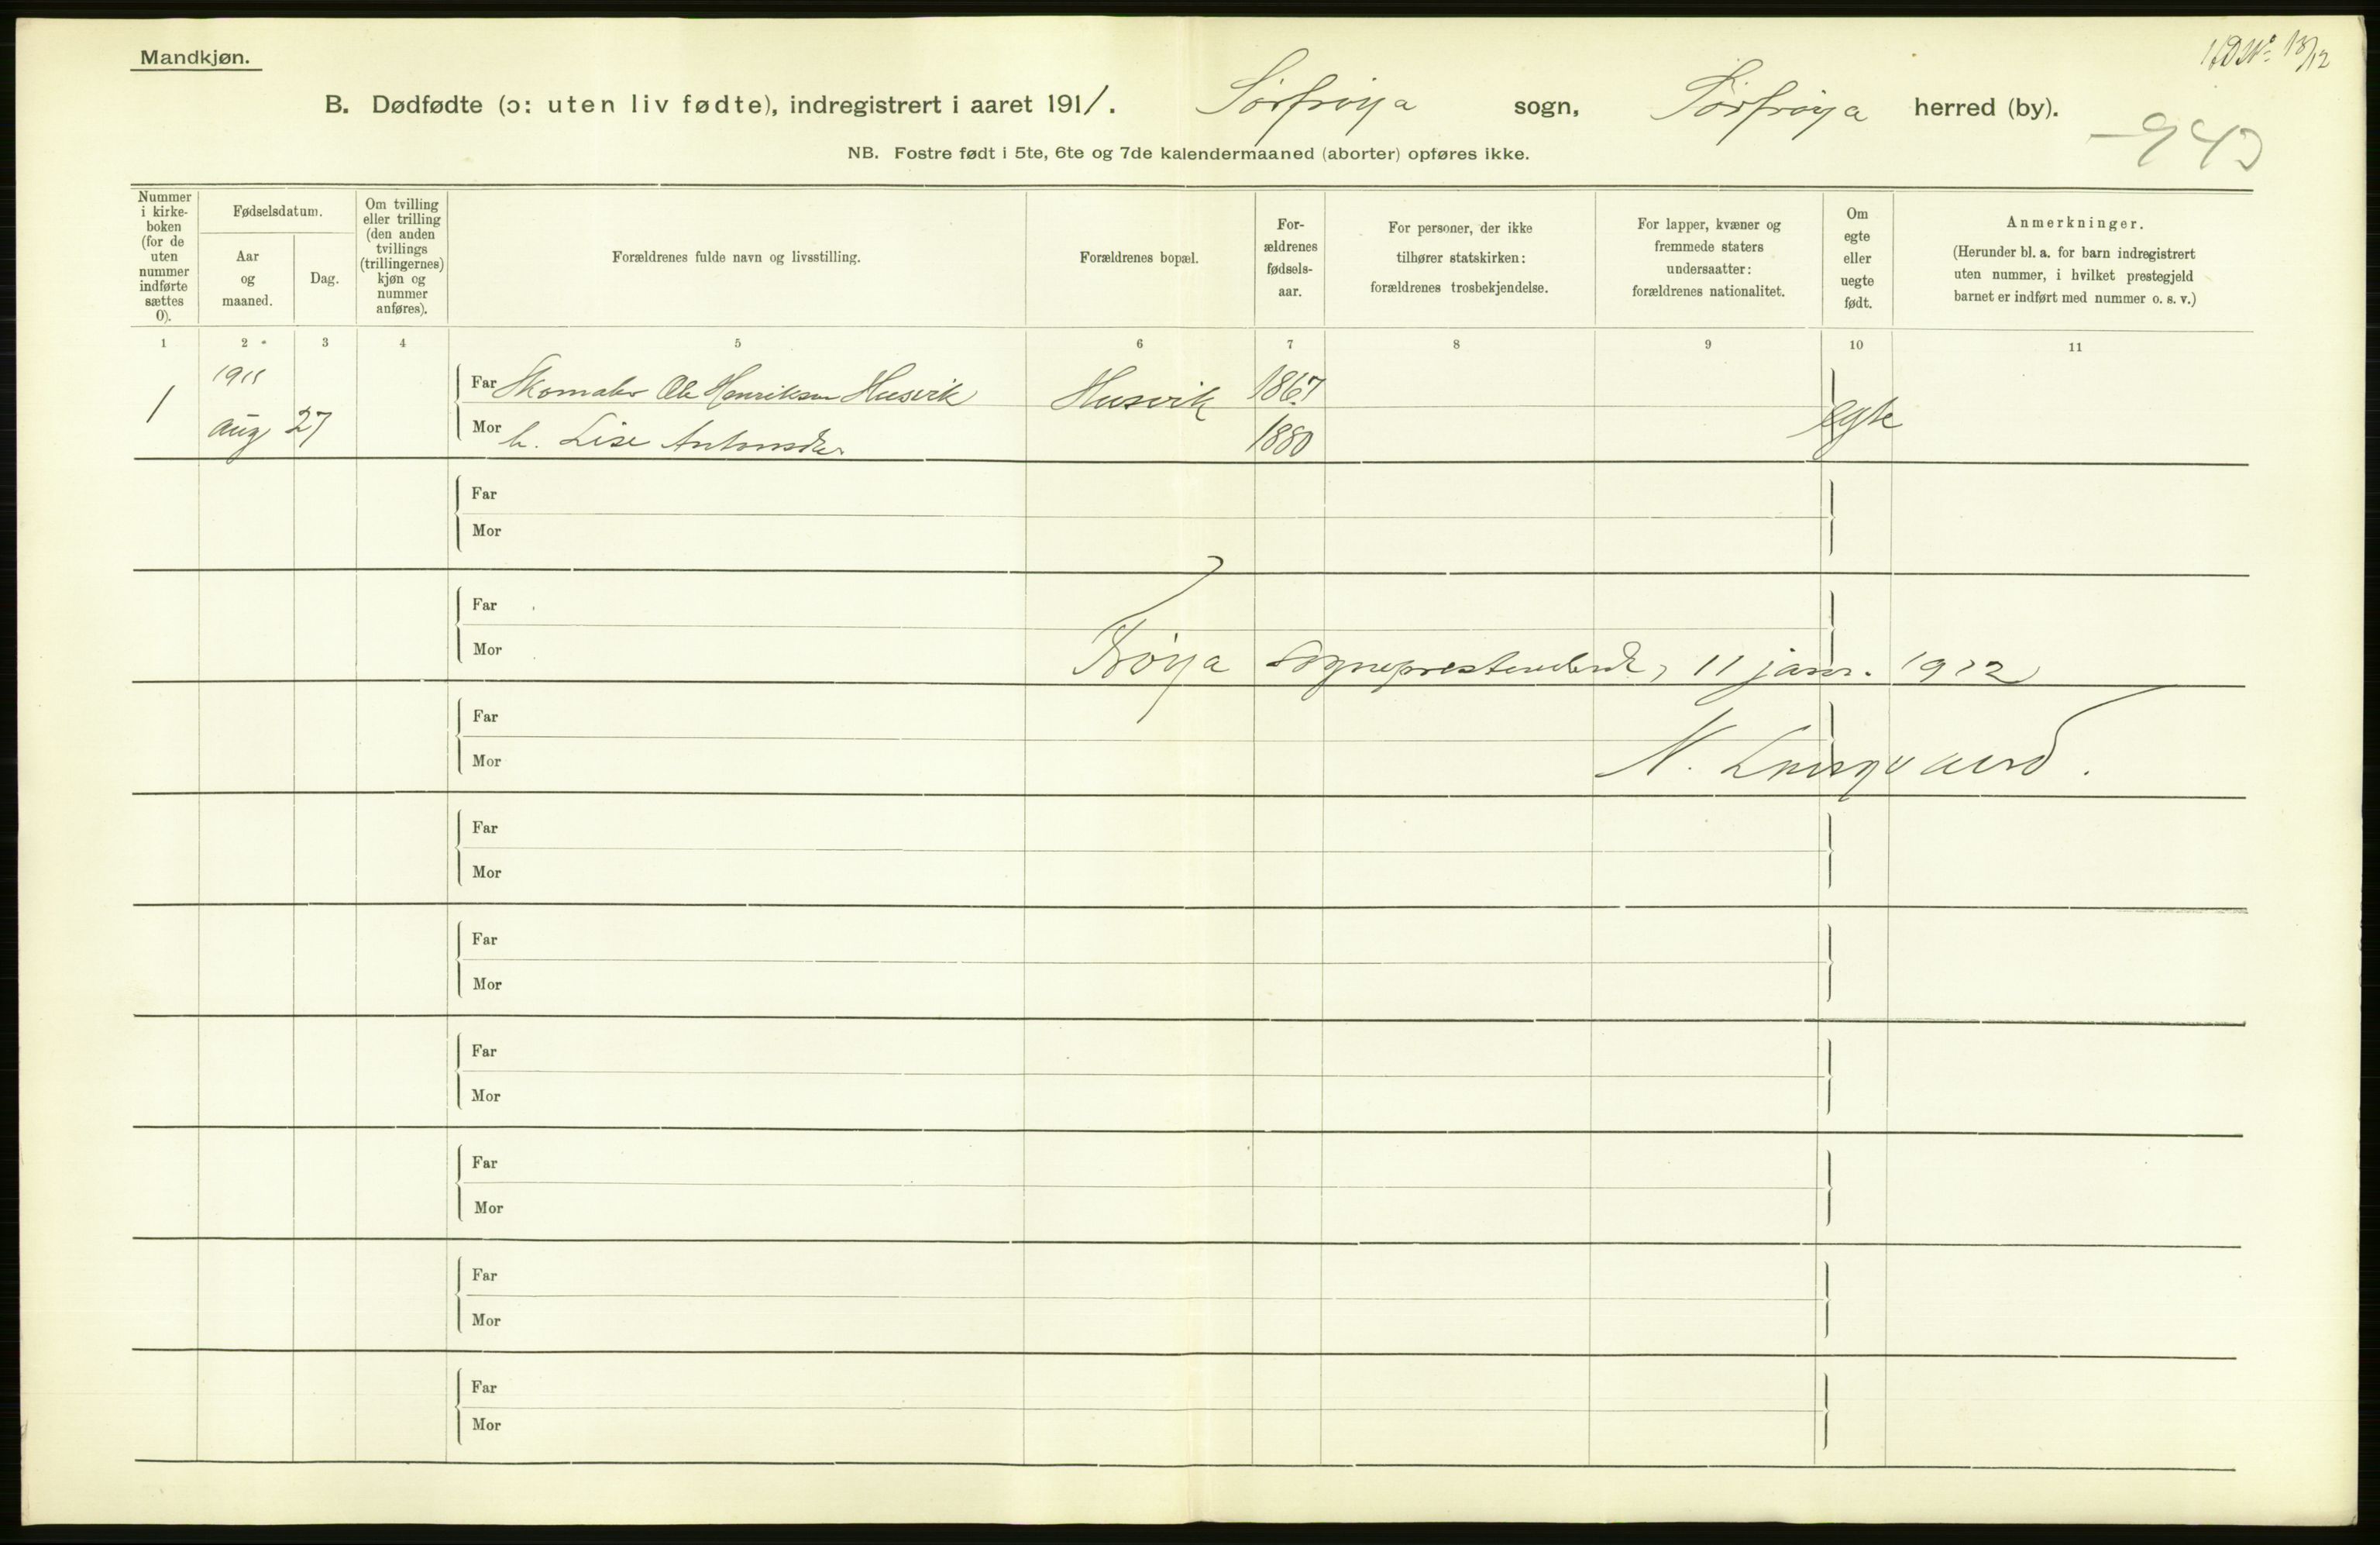 Mandkjøn.
B. Dødfødte (ɔ: uten liv fødte), indregistrert i aaret 1911. Sörfröya sogn, Sörfröya herred (by).
18/12
943
NB. Fostre født i 5te, 6te og 7de kalendermaaned (aborter) opføres ikke.
Nummer
i kirke-
boken
(for de
uten
nummer
indførte
sættes
0).
Fødselsdatum.
Aar
og
maaned.
Dag.
Om tvilling
eller trilling
(den anden
tvillings
(trillingernes)
kjøn og
nummer
anføres).
Forældrenes fulde navn og livsstilling.
Forældrenes bopæl.
For-
ældrenes
fødsels-
aar.
For personer, der ikke
tilhører statskirken:
forældrenes trosbekjendelse.
For lapper, kvæner og
fremmede staters
undersaatter:
forældrenes nationalitet.
Om
egte
eller
uegte
født.
Anmerkninger.
(Herunder bl. a. for barn indregistrert
uten nummer, i hvilket prestegjeld
barnet er indført med nummer o. s. v.)
1 2 3 4 5 6 7 8 9 10 11
1911
Far Skomaker Ole Henriksen Husvik Husvik 1867
1 aug 27 egte
Mor h. Lise Antonsdtr 1880
Far
Mor
Far
Mor
Fröya sogneprestembede, 11 janr. 1912
Far
N.
Mor
Far
Mor
Far
Mor
Far
Mor
Far
Mor
Far
Mor
Far
Mor